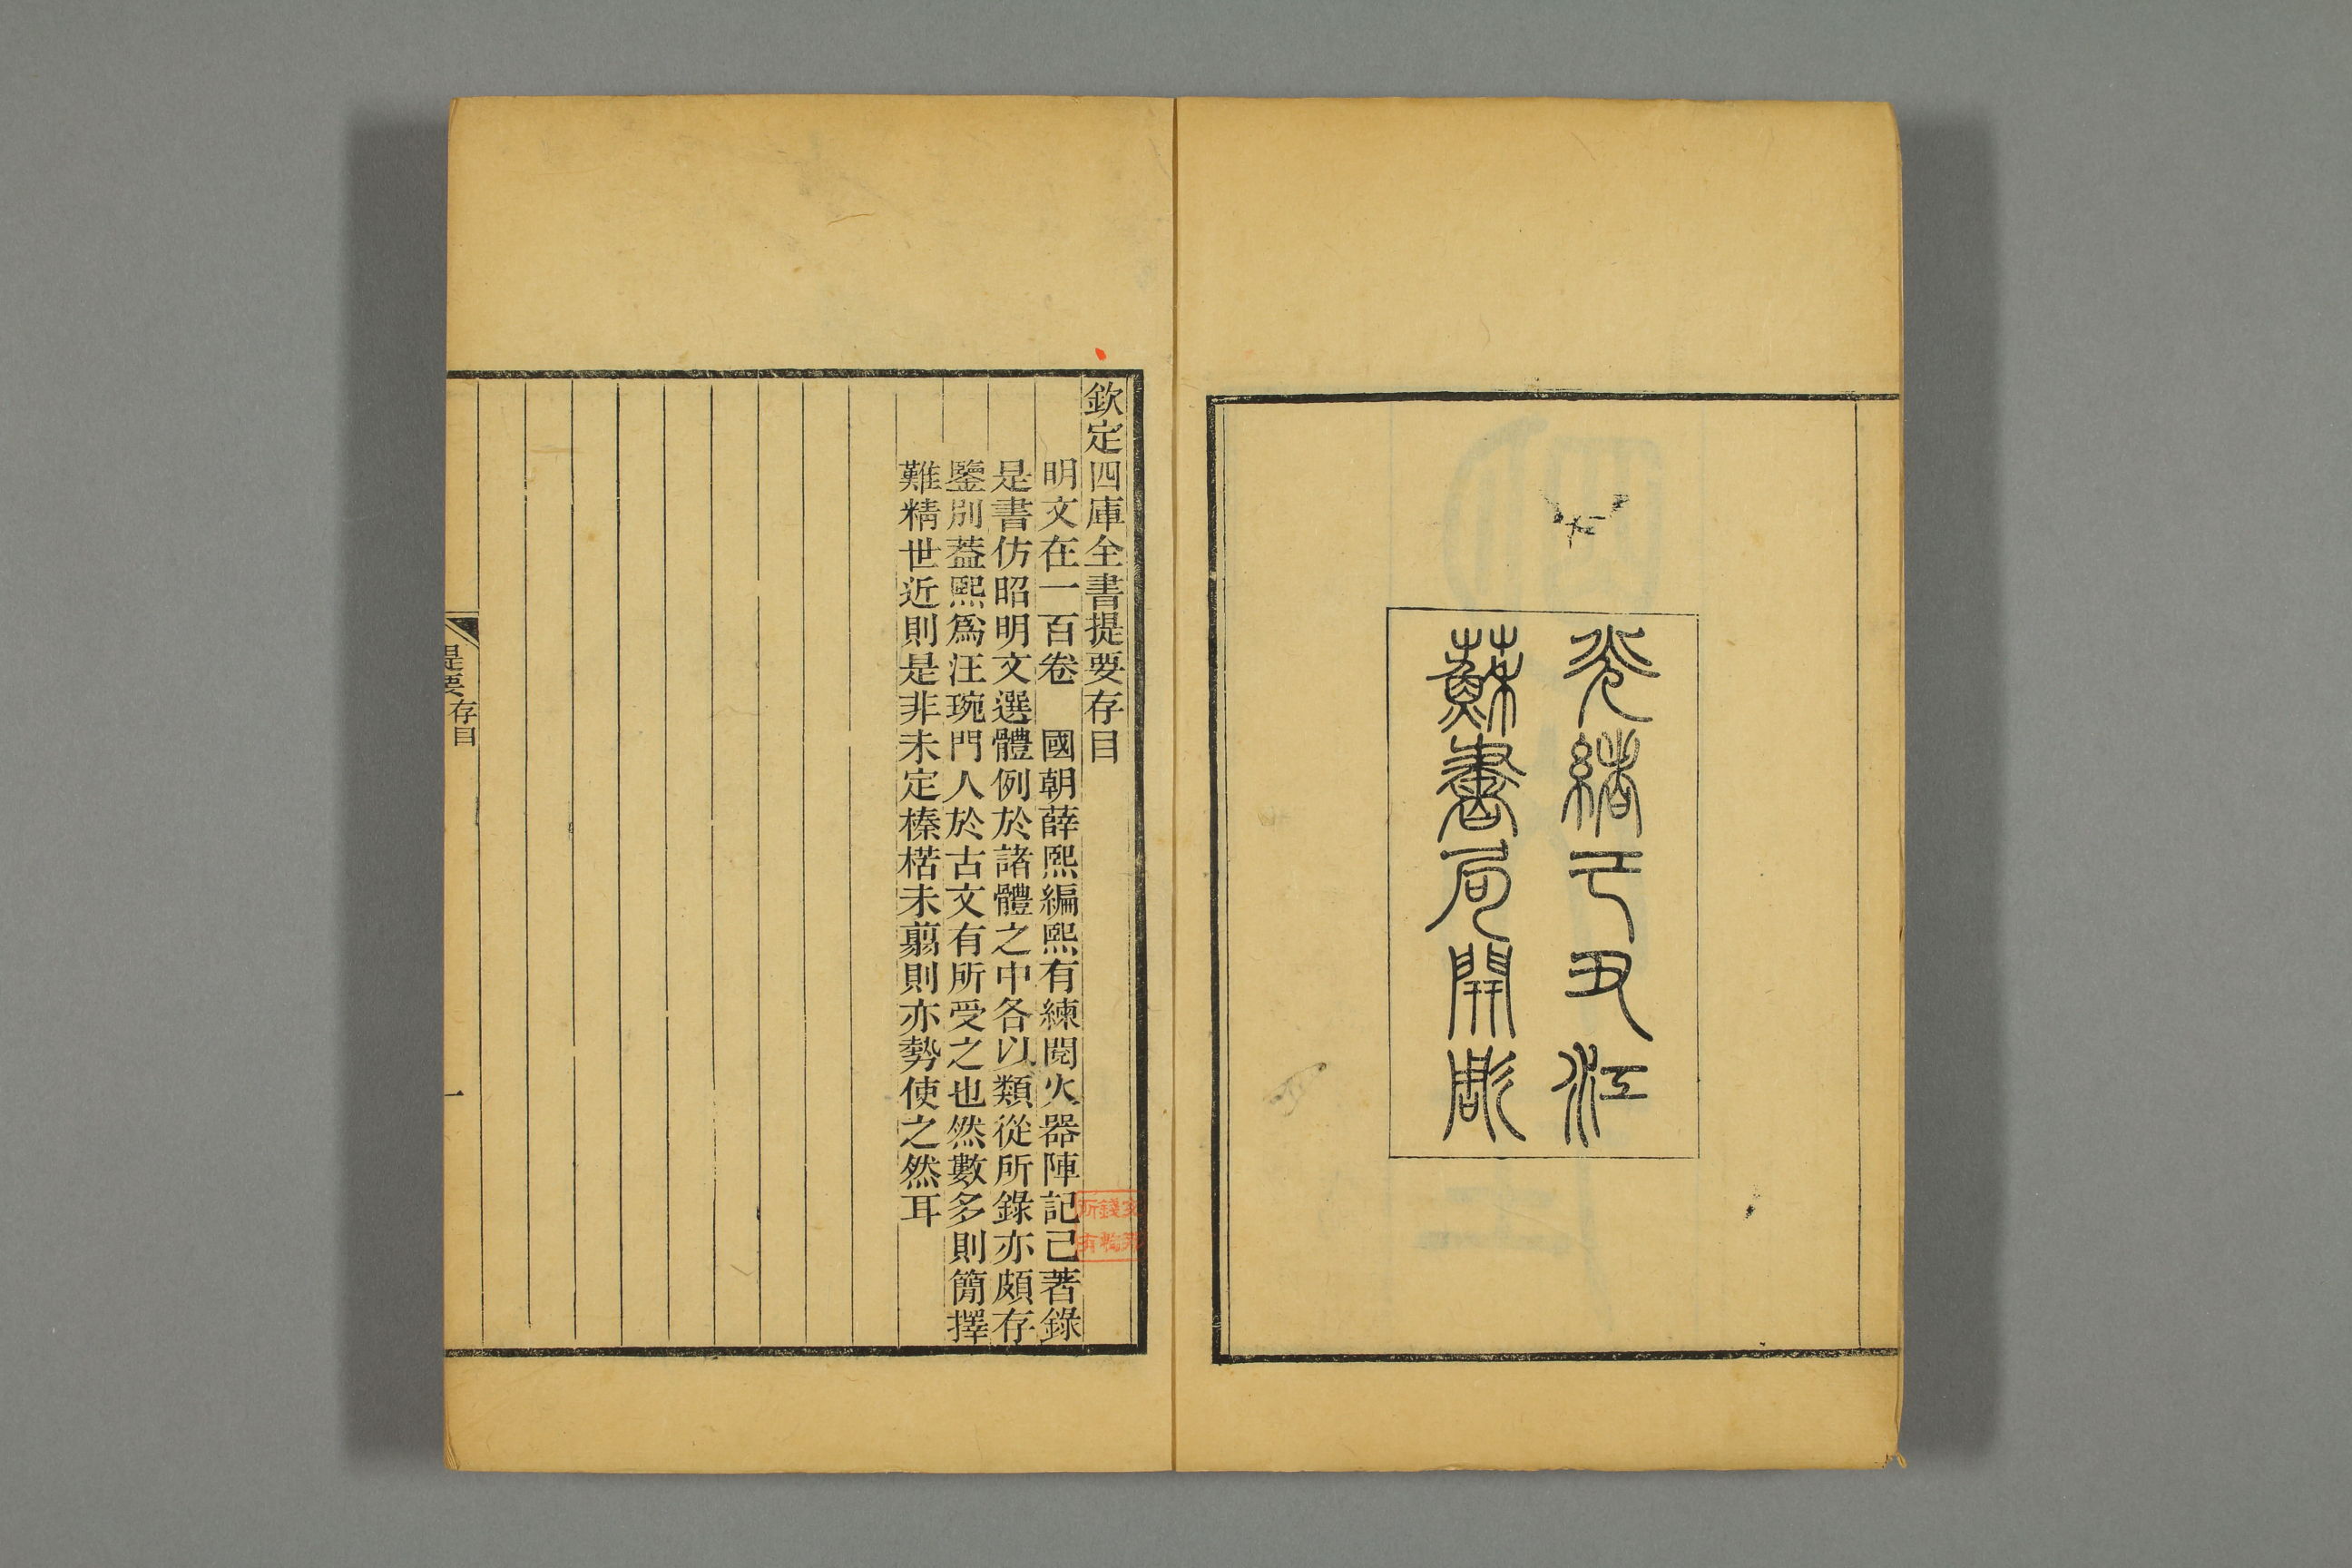 光緒己丑江
蘇書局開彫
欽定四庫全書提要存目
明文在一百卷　國朝薛熙編熙有練閱火器陣記己著錄
是書仿昭明文選體例於諸體之中各以類從所錄亦頗存
鑒別葢熙爲汪琬門人於古文有所受之也然數多則簡擇
難精世近則是非未定榛楛未翦則亦勢使之然耳
提要 存目
一